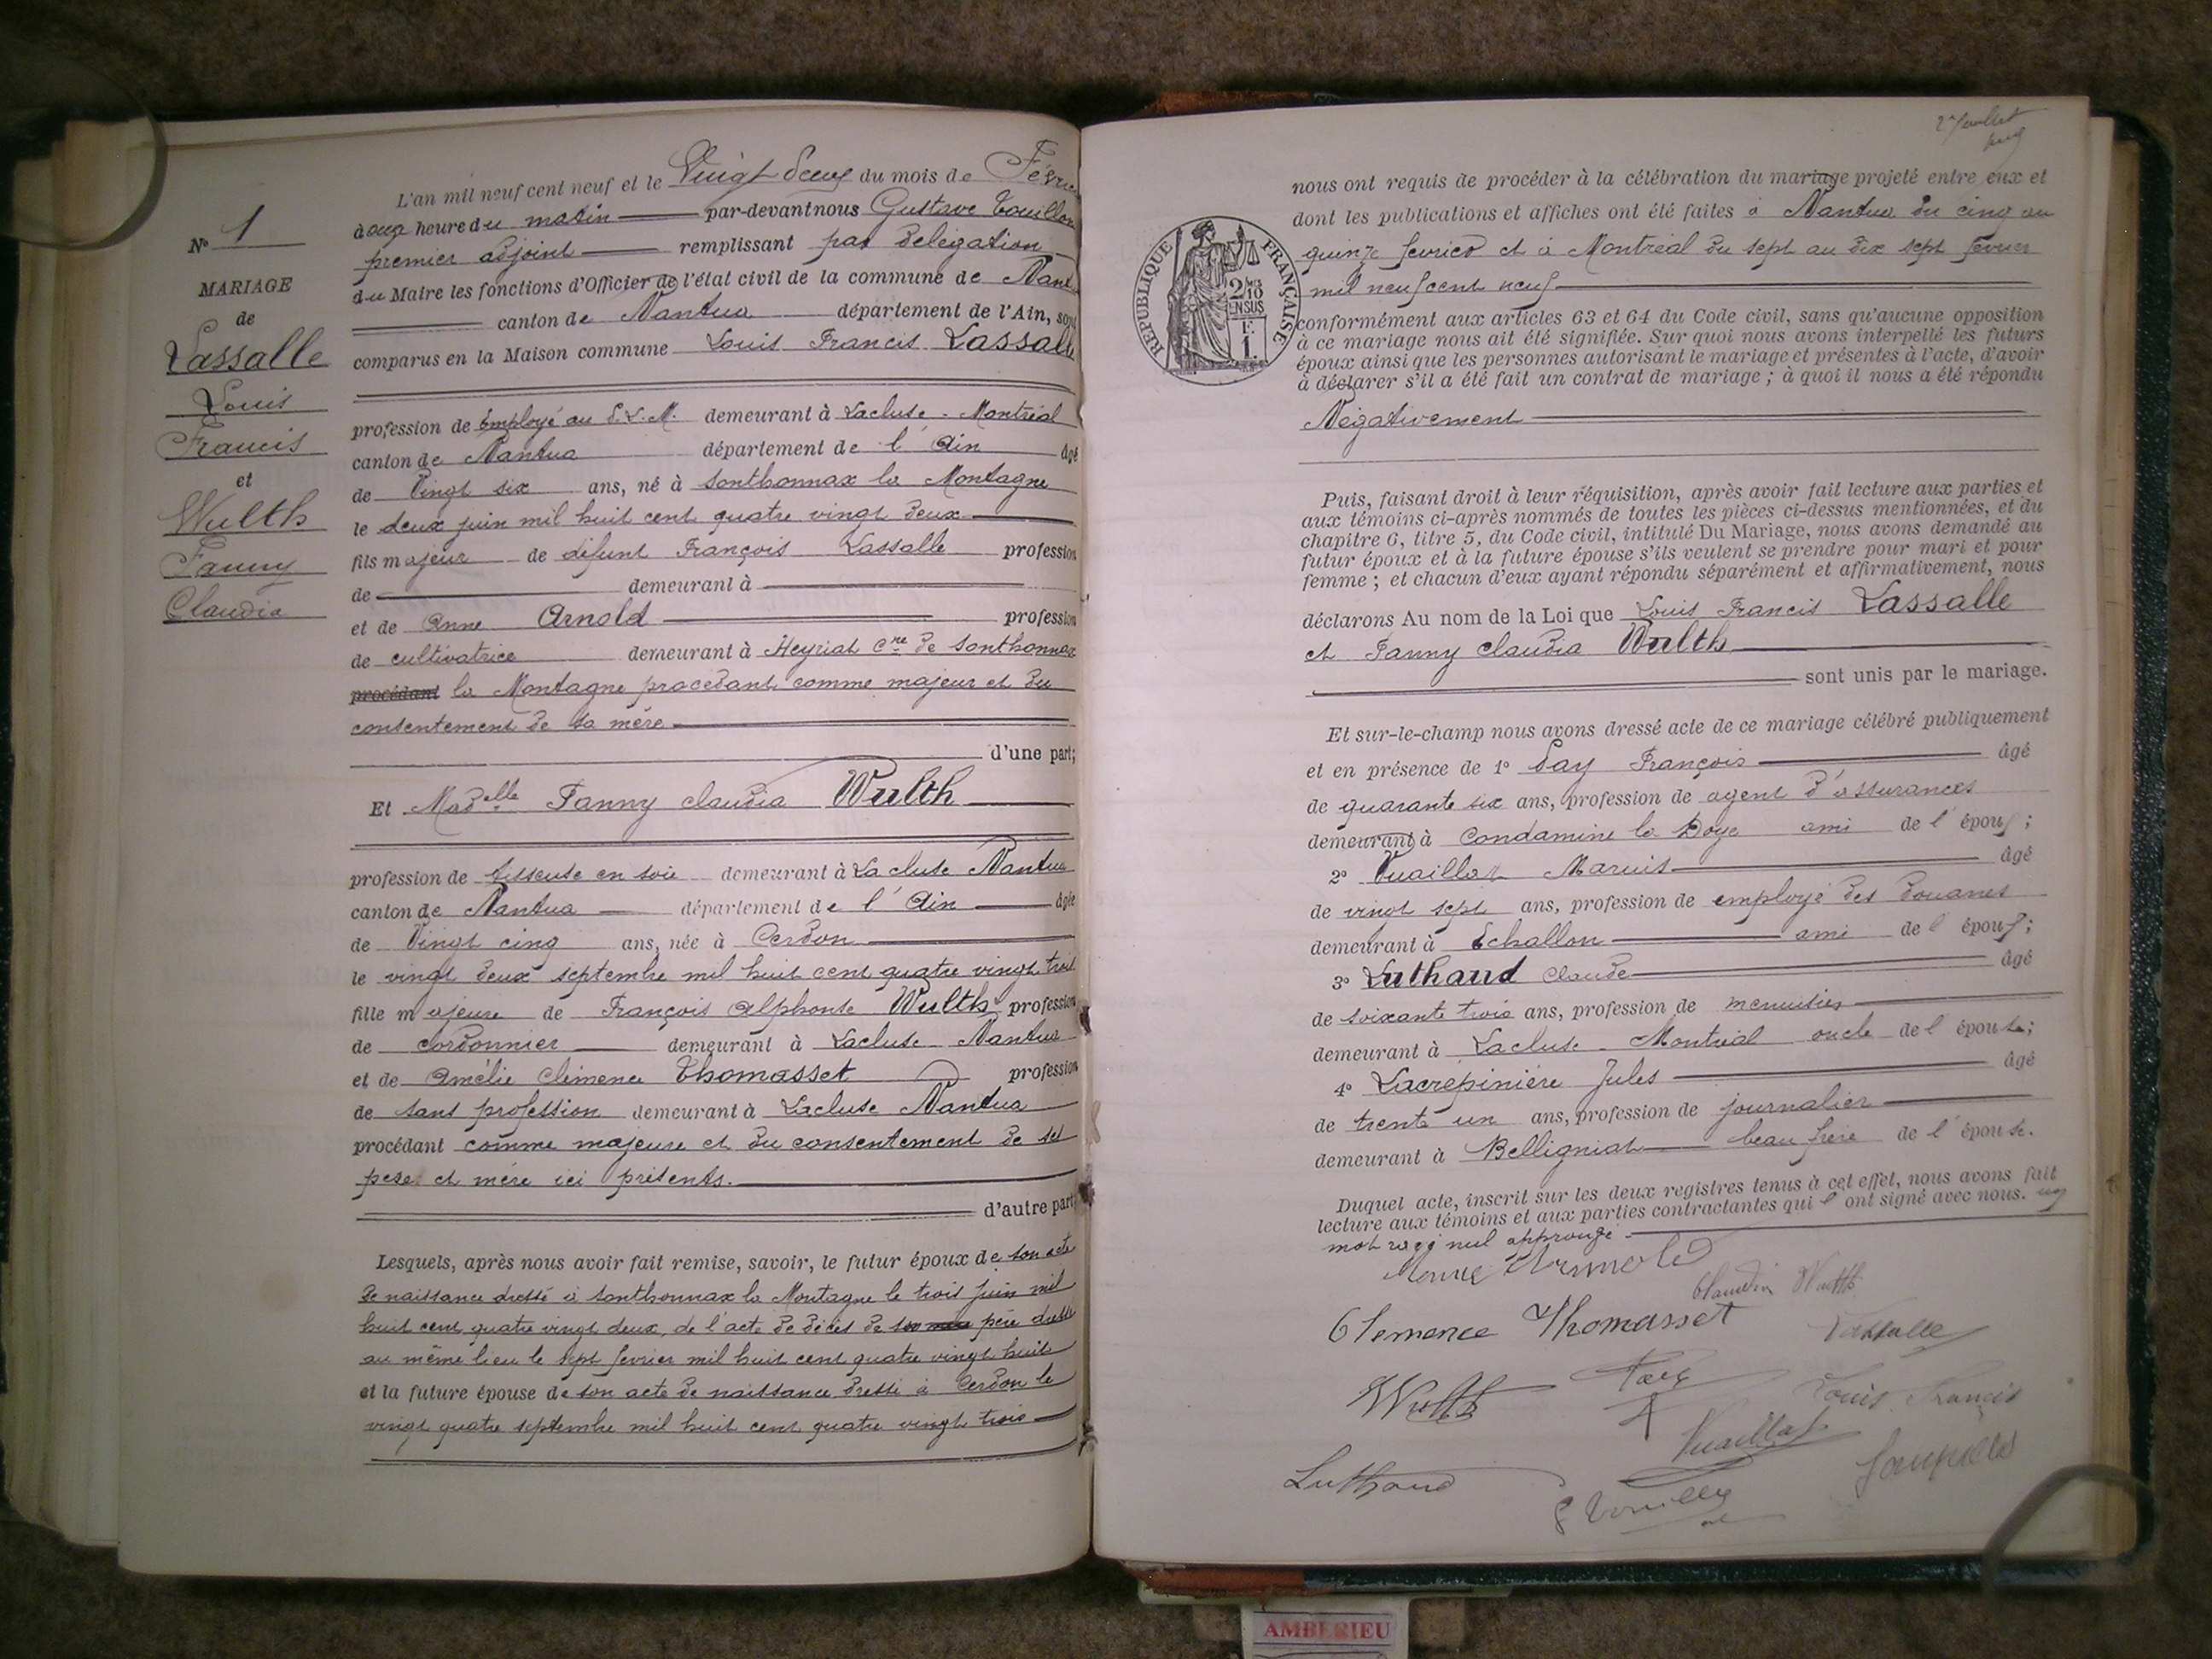 N° 1
MARIAGE
de
Lassalle
Louis
Francis
et
Wulth
Fanny
Claudia
L'an mil neuf cent neuf et le Vingt deux du mois de Févrie
à onze heure du matin par-devant nous Gustave Touillon
premier adjoint remplissant par délégation
du Maire les fonctions d'Officier de l'état civil de la commune de Nant
canton de Nantua département de l'Ain, sont
comparus en la Maison commune Louis Francis Lassalle
profession de Employé au P.L.M. demeurant à Lacluse - Montréal
canton de Nantua département de l'Ain âgé
de Vingt six ans, né à Sonthonnax la Montagne
le deux juin mil huit cent quatre vingt deux
fils majeur de défunt François Lassalle profession
de demeurant à
et de Anne Arnold profession
de cultivatrice demeurant à Heyriat Cne de Sonthonnax
procédant la Montagne procédant comme majeur et du
consentement de sa mère
d'une part;
Et Madelle Fanny Claudia Wulth
profession de tisseuse en soie demeurant à La cluse Nantua
canton de Nantua département de l'Ain âgée
de Vingt cinq ans, née à Cerdon
le vingt deux septembre mil huit cent quatre vingt trois
fille majeure de François Alphonse Wulth profession
de cordonnier demeurant à Lacluse Nantua
et de Amélie Clémence Thomasset profession
de sans profession demeurant à Lacluse Nantua
procédant comme majeure et du consentement de ses
père et mère ici présents.
d'autre part
Lesquels, après nous avoir fait remise, savoir, le futur époux de son acte
de naissance dressé à Sonthonnax la Montagne le trois juin mil
huit cent quatre vingt deux, de l'acte de décès de son père dressé
au même lieu le sept fevrier mil huit cent quatre vingt huit
et la future épouse de son acte de naissance dressé à Cerdon le
vingt quatre septembre mil huit cent quatre vingt trois
nous ont requis de procéder à la célébration du mariage projeté entre eux et
dont les publications et affiches ont été faites à Nantua du cinq au
quinze fevrier et à Montréal du sept au dix sept fevrier
mil neuf cent neuf
REPUBLIQUE FRANÇAISE
2/10 EN SUS
F. 1.
conformément aux articles 63 et 64 du Code civil, sans qu'aucune opposition
à ce mariage nous ait été signifiée. Sur quoi nous avons interpellé les futurs
époux ainsi que les personnes autorisant le mariage et présentes à l'acte, d'avoir
à déclarer s'il a été fait un contrat de mariage ; à quoi il nous a été répondu
Négativement
Puis, faisant droit à leur réquisition, après avoir fait lecture aux parties et
aux témoins ci-après nommés de toutes les pièces ci-dessus mentionnées, et du
chapitre 6, titre 5, du Code civil, intitulé Du Mariage, nous avons demandé au
futur époux et à la future épouse s'ils veulent se prendre pour mari et pour
femme ; et chacun d'eux ayant répondu séparément et affirmativement, nous
déclarons Au nom de la Loi que Louis Francis Lassalle
et Fanny Claudia Wulth
sont unis par le mariage.
Et sur-le-champ nous avons dressé acte de ce mariage célébré publiquement
et en présence de 1° Pay François âgé
de quarante six ans, profession de agent d'assurances
demeurant à Condamine la Doye ami de l'époux ;
2° Vuaillat Marius âgé
de vingt sept ans, profession de employé des douanes
demeurant à Echallon ami de l'époux ;
3° Luthaud Claude âgé
de soixante trois ans, profession de menuisier
demeurant à Lacluse - Montréal oncle de l'épouse ;
4° Lacrepinière Jules âgé
de trente un ans, profession de journalier
demeurant à Belligniat beau frère de l'épouse.
Duquel acte, inscrit sur les deux registres tenus à cet effet, nous avons fait
lecture aux témoins et aux parties contractantes qui l'ont signé avec nous. un
mot rayé nul approuvé
Anne Arnold
Claudia Wulth
Clemence Thomasset
Lassalle
Wulth
Louis Francis
Vuaillat
Luthaud
AMBERIEU